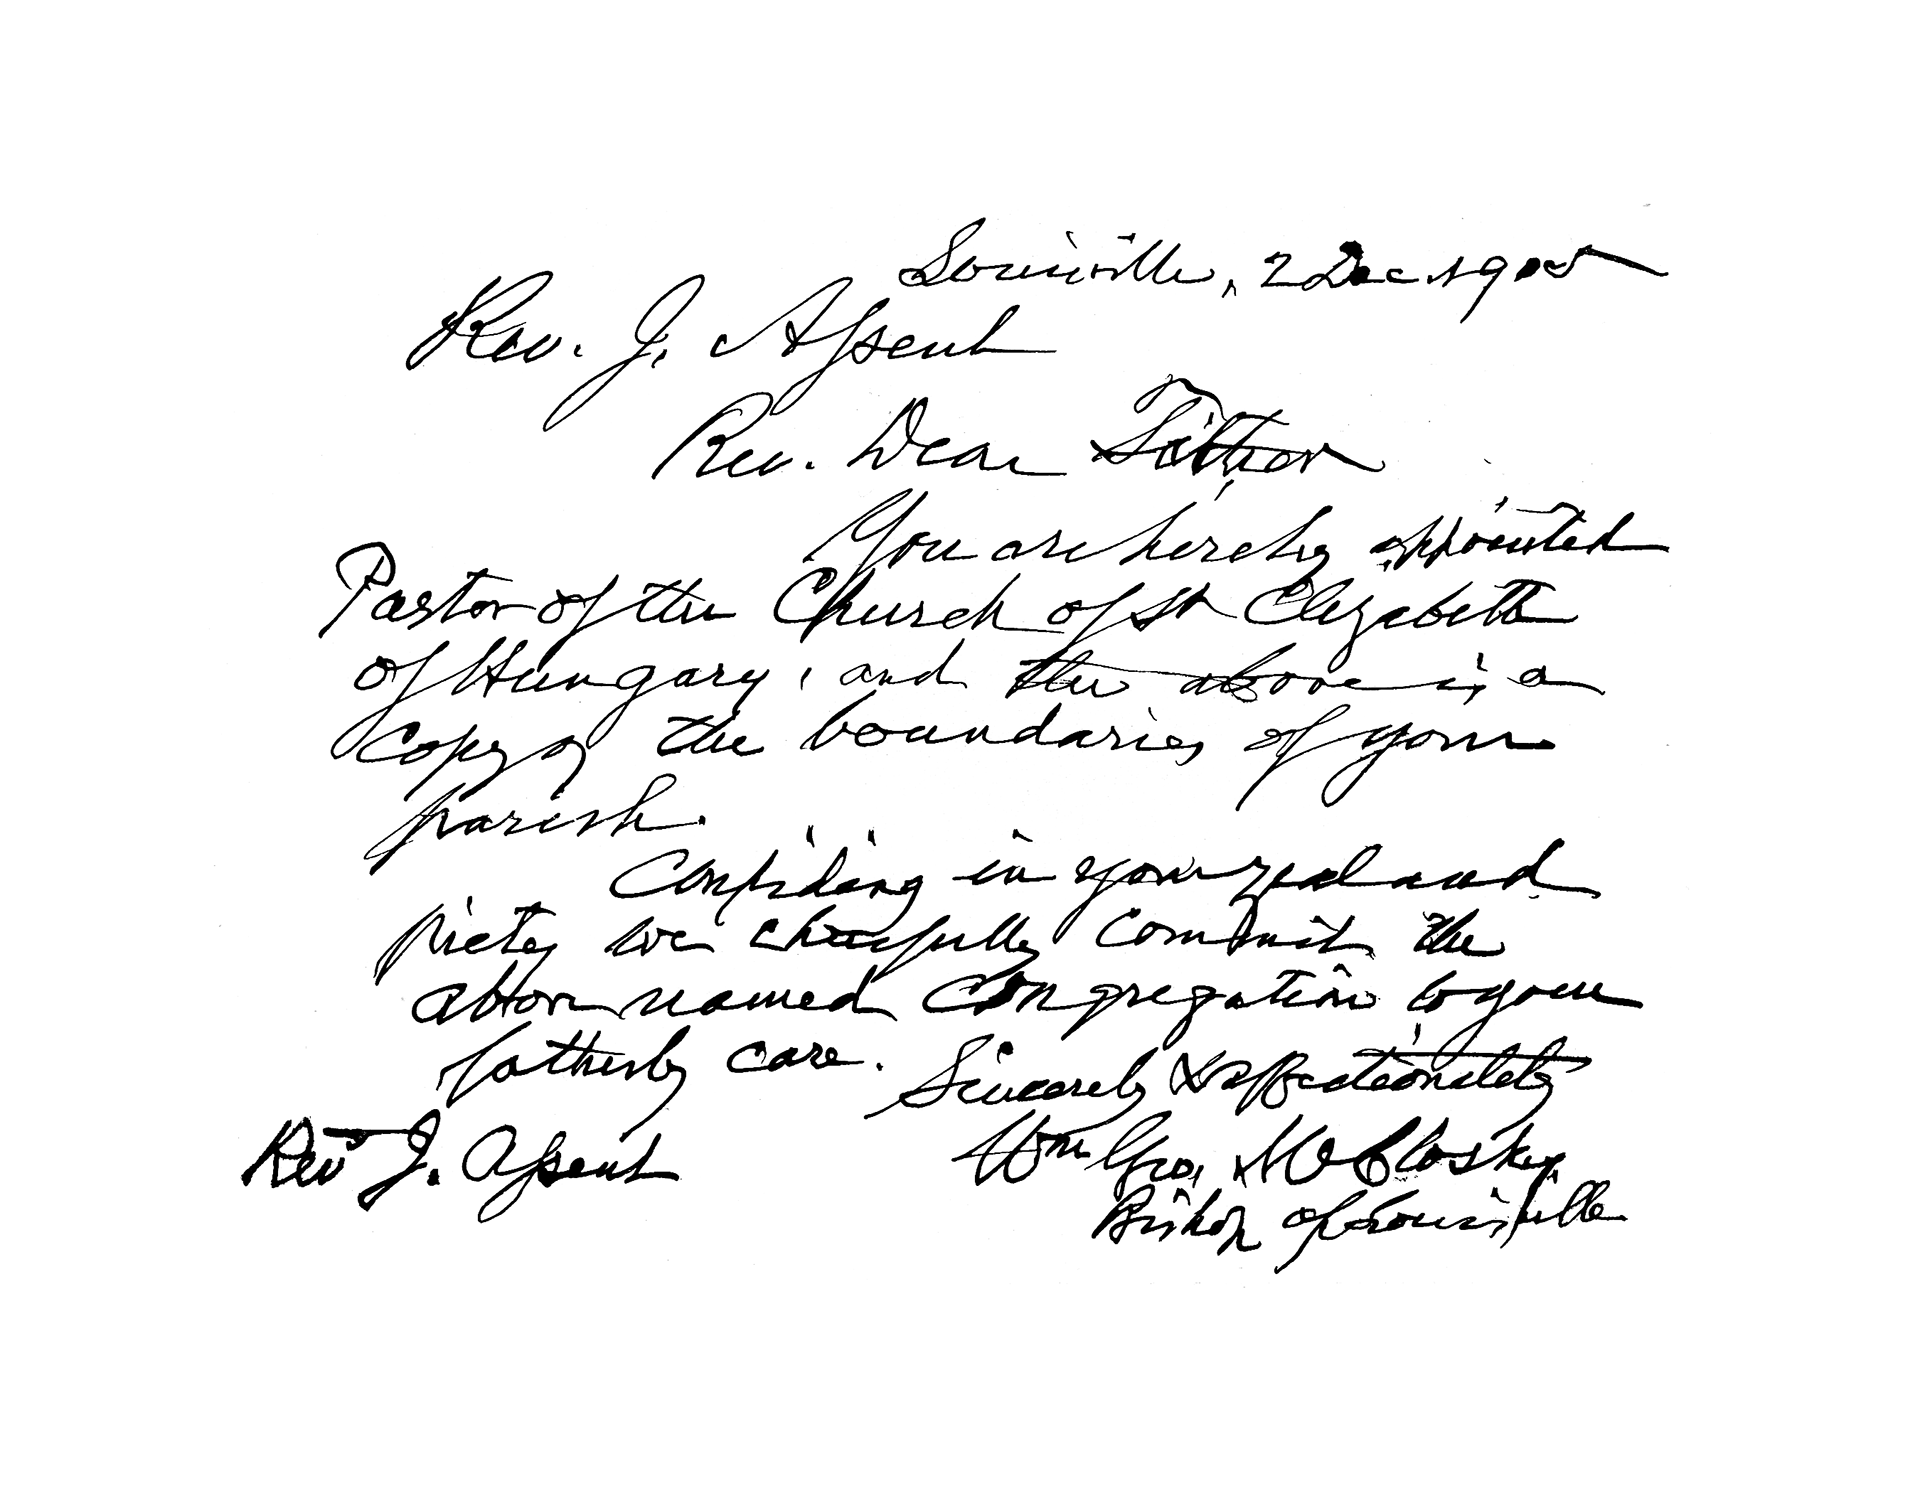 Louisville, 2 Dec. 1905
Rev. J. Assent
Rev. Dear Father
You are hereby appointed
Pastor of the Church of St Elizabeth
of Hungary, and the above is a
copy of the boundaries of your
parish.
Confiding in your zeal and
piety we cheerfully commit the
above named congregation to your
fatherly care.
Sincerely & affectionately
Wm Geo. McCloskey
Bishop of Louisville
Rev J. Assent